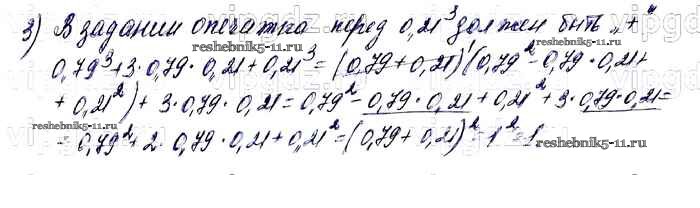 3) В задании опечатка перед 0,21³ должен быть „+“
0,79³+3·0,79·0,21+0,21³=(0,79+0,21)(0,79²-0,79·0,21+
+0,21²)+3·0,79·0,21=0,79²-0,79·0,21+0,21²+3·0,79·0,21=
=0,79²+2·0,79·0,21+0,21²=(0,79+0,21)²=1²=1
reshebnik5-11.ru
reshebnik5-11.ru
reshebnik5-11.ru
reshebnik5-11.ru